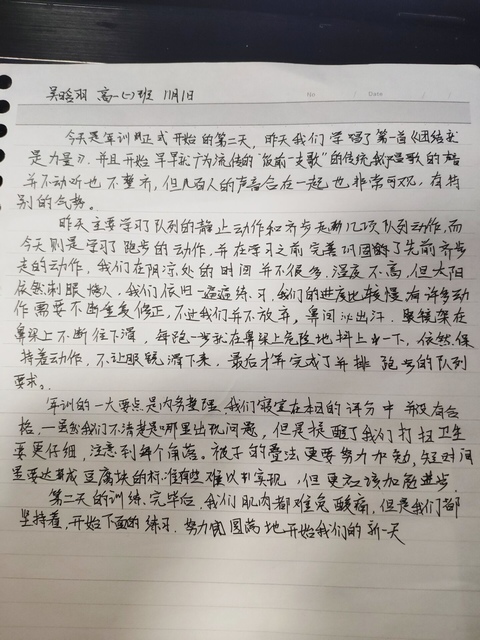 吴晗羽 高一(一)班 11月1日
No
Date
今天是军训正式开始的第二天，昨天我们学唱了第一首《团结就
是力量》，并且开始早早就广为流传的“饭前一支歌”的传统，我们唱歌的声音
并不动听也不整齐，但几百人的声音合在一起也非常可观，有特
别的气势。
昨天主要学习了队列的静止动作和齐步走那几项队列动作，而
今天则是学习了跑步的动作，并在学习之前完善巩固了先前齐步
走的动作，我们在阴凉处的时间并不很多，温度不高，但太阳
依然刺眼恼人，我们依旧一遍遍练习，我们的进度比较慢，有许多动
作需要不断重复修正，不过我们并不放弃，鼻间沁出汗，眼镜架在
鼻梁上不断往下滑，每跑一步就在鼻梁上危险地抖上一下，依然保
持着动作，不让眼镜滑下来，最后才算完成了并排跑步的队列
要求。
军训的一大要点是内务整理，我们寝室在本日的评分中并没有合
格，虽然我们不清楚是哪里出现问题，但是提醒了我们打扫卫生
要更仔细，注意到每个角落。被子的叠法更要努力加劲，短时间
里要达成豆腐块的标准有些难以实现，但更应该加劲进步。
第二天的训练完毕后，我们肌肉都难免酸痛，但是我们都
坚持着，开始下面的练习，努力圆满地开始我们的新一天